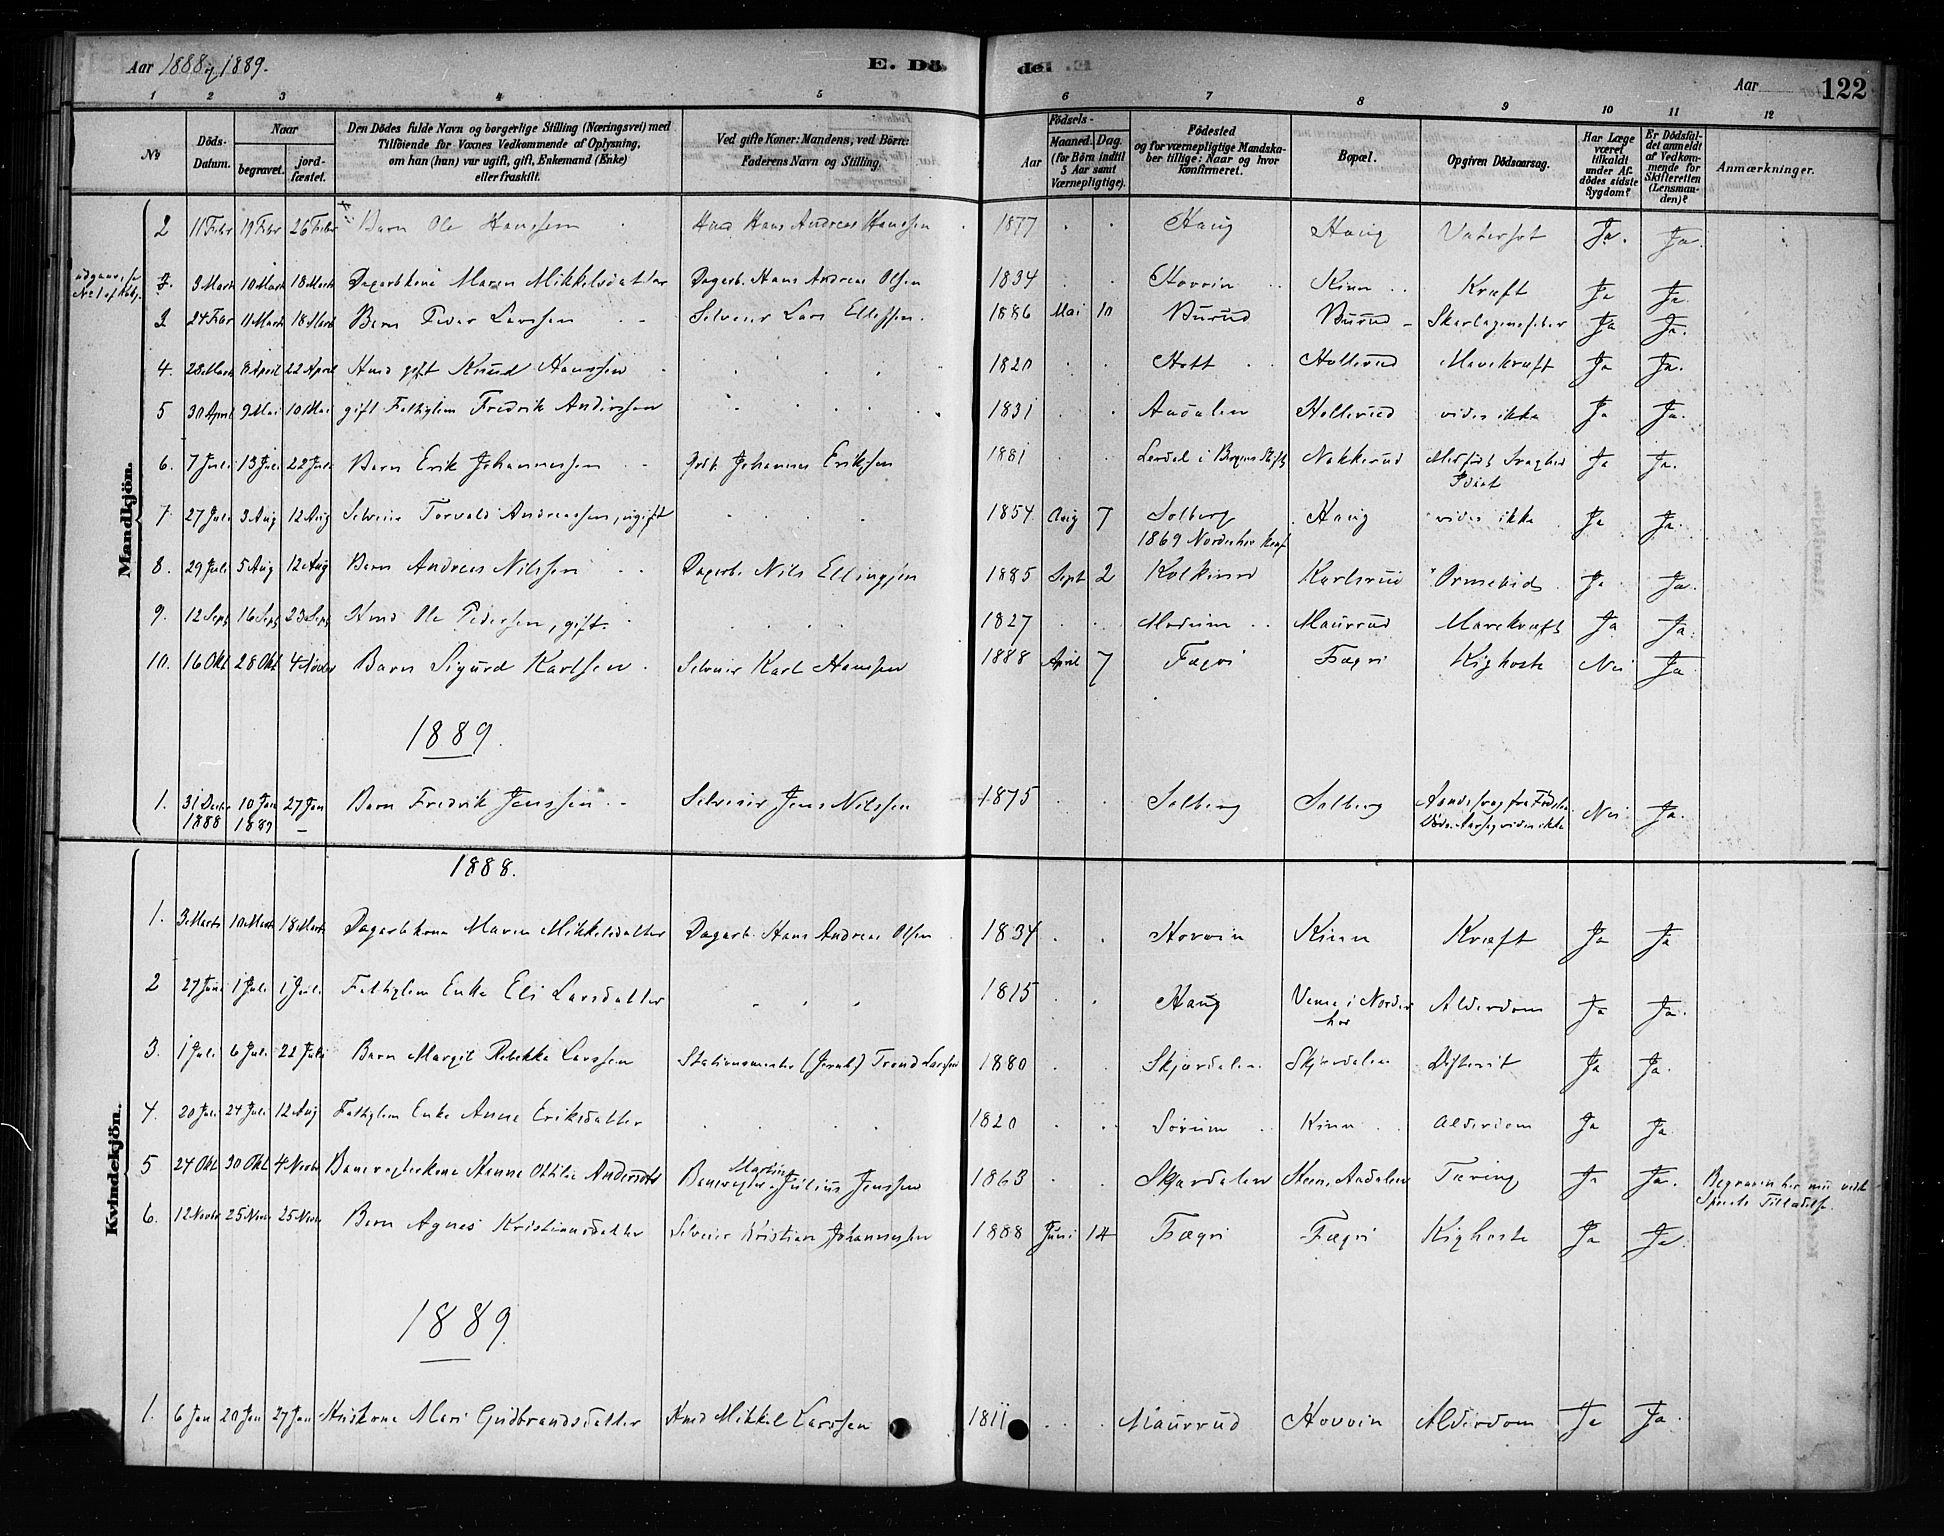 Aar 1888 & 1889.
E. Dö
de.
Aar
122
1 2 3 4 5 6 7 8 9 10 11 12
No
Döds-Datum.
Naar
begravet.
jord-fæstet.
Den Dödes fulde Navn og borgerlige Stilling (Næringsvei) med
Tilföiende for Voxnes Vedkommende af Oplysning,
om han (hun) var ugift, gift, Enkemand (Enke)
eller fraskilt.
Ved gifte Koner: Mandens, ved Börn:
Faderens Navn og Stilling.
Födsels-
Aar
Maaned. Dag.
(for Börn indtil
5 Aar samt
Værnepligtige).
Födested
og for værnepligtige Mandska-
ber tillige: Naar og hvor
konfirmeret.
Bopæl.
Opgiven Dödsaarsag.
Har Læge
været
tilkaldt
under Af-
dödes sidste
Sygdom?
Er Dödsfal-
det anmeldt
af Vedkom-
mende for
Skifteretten
(Lensman-
den)?
Anmærkninger.
Mandkjön.
2 11 Febr 19 Febr 26 Febr Barn Ole Hanssen Hmd Hans Andreas Hanssen 1877 Haug Haug Vatersot Ja. Ja
udgaar, se
No 1 af Kvkj.
3. 3 Marts 10 Marts 18 Marts Dagarbkone Maren Mikkelsdatter Dagarb. Hans Andreas Olsen 1834 Hovvin Kinn Kræft Ja Ja
3 24 Febr 11 Marts 18 Marts Barn Peder Larssen Selveier Lars Ellefsen. 1886 Mai 10 Burud Burud Skarlagensfeber Ja Ja.
4. 28 Marts 8 April 22 April Hmd gift Knud Hanssen 1820 Hott Hollerud Mavekræft Ja Ja.
5 30 April 9 Mai 10 Mai gift Fattiglem Fredrik Anderssen 1831 Aadalen Hollerud vides ikke Ja Ja.
6. 7 Juli 13 Juli 22 Juli Barn Erik Johannessen Johannes Eriksen 1881 Lerdal i Bergens Stift Nakkerud Medfødt Svaghed Ja Ja.
Idiot
7. 27 Juli 3 Aug 12 Aug Selveier Torvald Andreassen, ugift 1854 Aug 7 Solberg Haug vides ikke Ja Ja.
1869 Norderhov Konf
8. 29 Juli 5 Aug 12 Aug Barn Andreas Nilssen Dagarb. Nils Ellingsen 1885 Sept 2 Karlsrud Ormebid Ja Ja.
9. 12 Sept 16 Sept 23 Sept Hmd Ole Pedersen, gift. 1827 Modum Maurrud Mavekræft Ja Ja.
10. 16 Okt 28 Okt 4 Novbr Barn Sigurd Karlsen Selveier Karl Hanssen 1888 April 7 Fægri Fægri Kighoste Nei Ja
1889.
1. 31 Decbr 10 Jan 27 Jan Barn Fredrik Jenssen Selveier Jens Nilssen 1875 Solberg Solberg Aandssvag fra Fødslen Nei Ja.
1888 1889 Døds-Aarsag vides ikke
Kvindekjön.
1888.
1. 3 Marts 10 Marts 18 Marts Dagarbkone Maren Mikkelsdatter Dagarb. Hans Andreas Olsen 1834 Hovvin Kinn Kræft Ja Ja
2 27 Juni 1 Juli 1 Juli Fattiglem Enke Eli Larsdatter 1815 Haug Veme i Norder Alderdom Ja Ja.
hov
3. 1 Juli 6 Juli 22 Juli Barn Margit Rebekka Larssen Stationsmester (Jernb) Trond Larssen 1880 Skjærdalen Skjærdalen Difterit Ja Ja.
4. 20 Juli 24 Juli 12 Aug Fattiglem Enke Anne Eriksdatter 1820 Sørum Kinn Alderdom Ja Ja.
5 24 Okt 30 Okt 4 Novbr Banevogterkone Hanne Othilie Andersdtr Banevogter Martin Julius Jenssen 1863 Skjærdalen Steen, Aadalen Tæring Ja Ja. Begraven her
Tilladelse.
6. 12 Novbr 25 Novbr 25 Novbr Barn Agnes Kristiansdatter Selveier Kristian Johannessen 1888 Juni 14 Fægri Fægri Kighoste Ja Ja.
1889.
1. 6 Jan 20 Jan 27 Jan Huskone Mari Gudbrandsdatter Hmd Mikkel Larssen 1811 Maurrud Hovvin Alderdom Ja Ja.